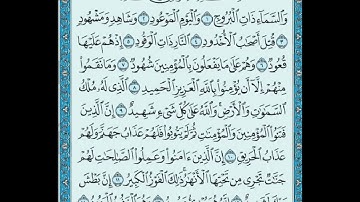 وَالسَّمَاءِ ذَاتِ الْبُرُوجِ ١ وَالْيَوْمِ الْمَوْعُودِ ٢ وَشَاهِدٍ وَمَشْهُودٍ
٣ قُتِلَ أَصْحَٰبُ الْأُخْدُودِ ٤ النَّارِ ذَاتِ الْوَقُودِ ٥ إِذْ هُمْ عَلَيْهَا
قُعُودٌ ٦ وَهُمْ عَلَىٰ مَا يَفْعَلُونَ بِالْمُؤْمِنِينَ شُهُودٌ ٧ وَمَا نَقَمُوا
مِنْهُمْ إِلَّا أَن يُؤْمِنُوا بِاللَّهِ الْعَزِيزِ الْحَمِيدِ ٨ الَّذِي لَهُ مُلْكُ
السَّمَٰوَٰتِ وَالْأَرْضِ وَاللَّهُ عَلَىٰ كُلِّ شَيْءٍ شَهِيدٌ ٩ إِنَّ الَّذِينَ
فَتَنُوا الْمُؤْمِنِينَ وَالْمُؤْمِنَٰتِ ثُمَّ لَمْ يَتُوبُوا فَلَهُمْ عَذَابُ جَهَنَّمَ وَلَهُمْ
عَذَابُ الْحَرِيقِ ١٠ إِنَّ الَّذِينَ ءَامَنُوا وَعَمِلُوا الصَّٰلِحَٰتِ لَهُمْ
جَنَّٰتٌ تَجْرِي مِن تَحْتِهَا الْأَنْهَٰرُ ذَٰلِكَ الْفَوْزُ الْكَبِيرُ ١١ إِنَّ بَطْشَ